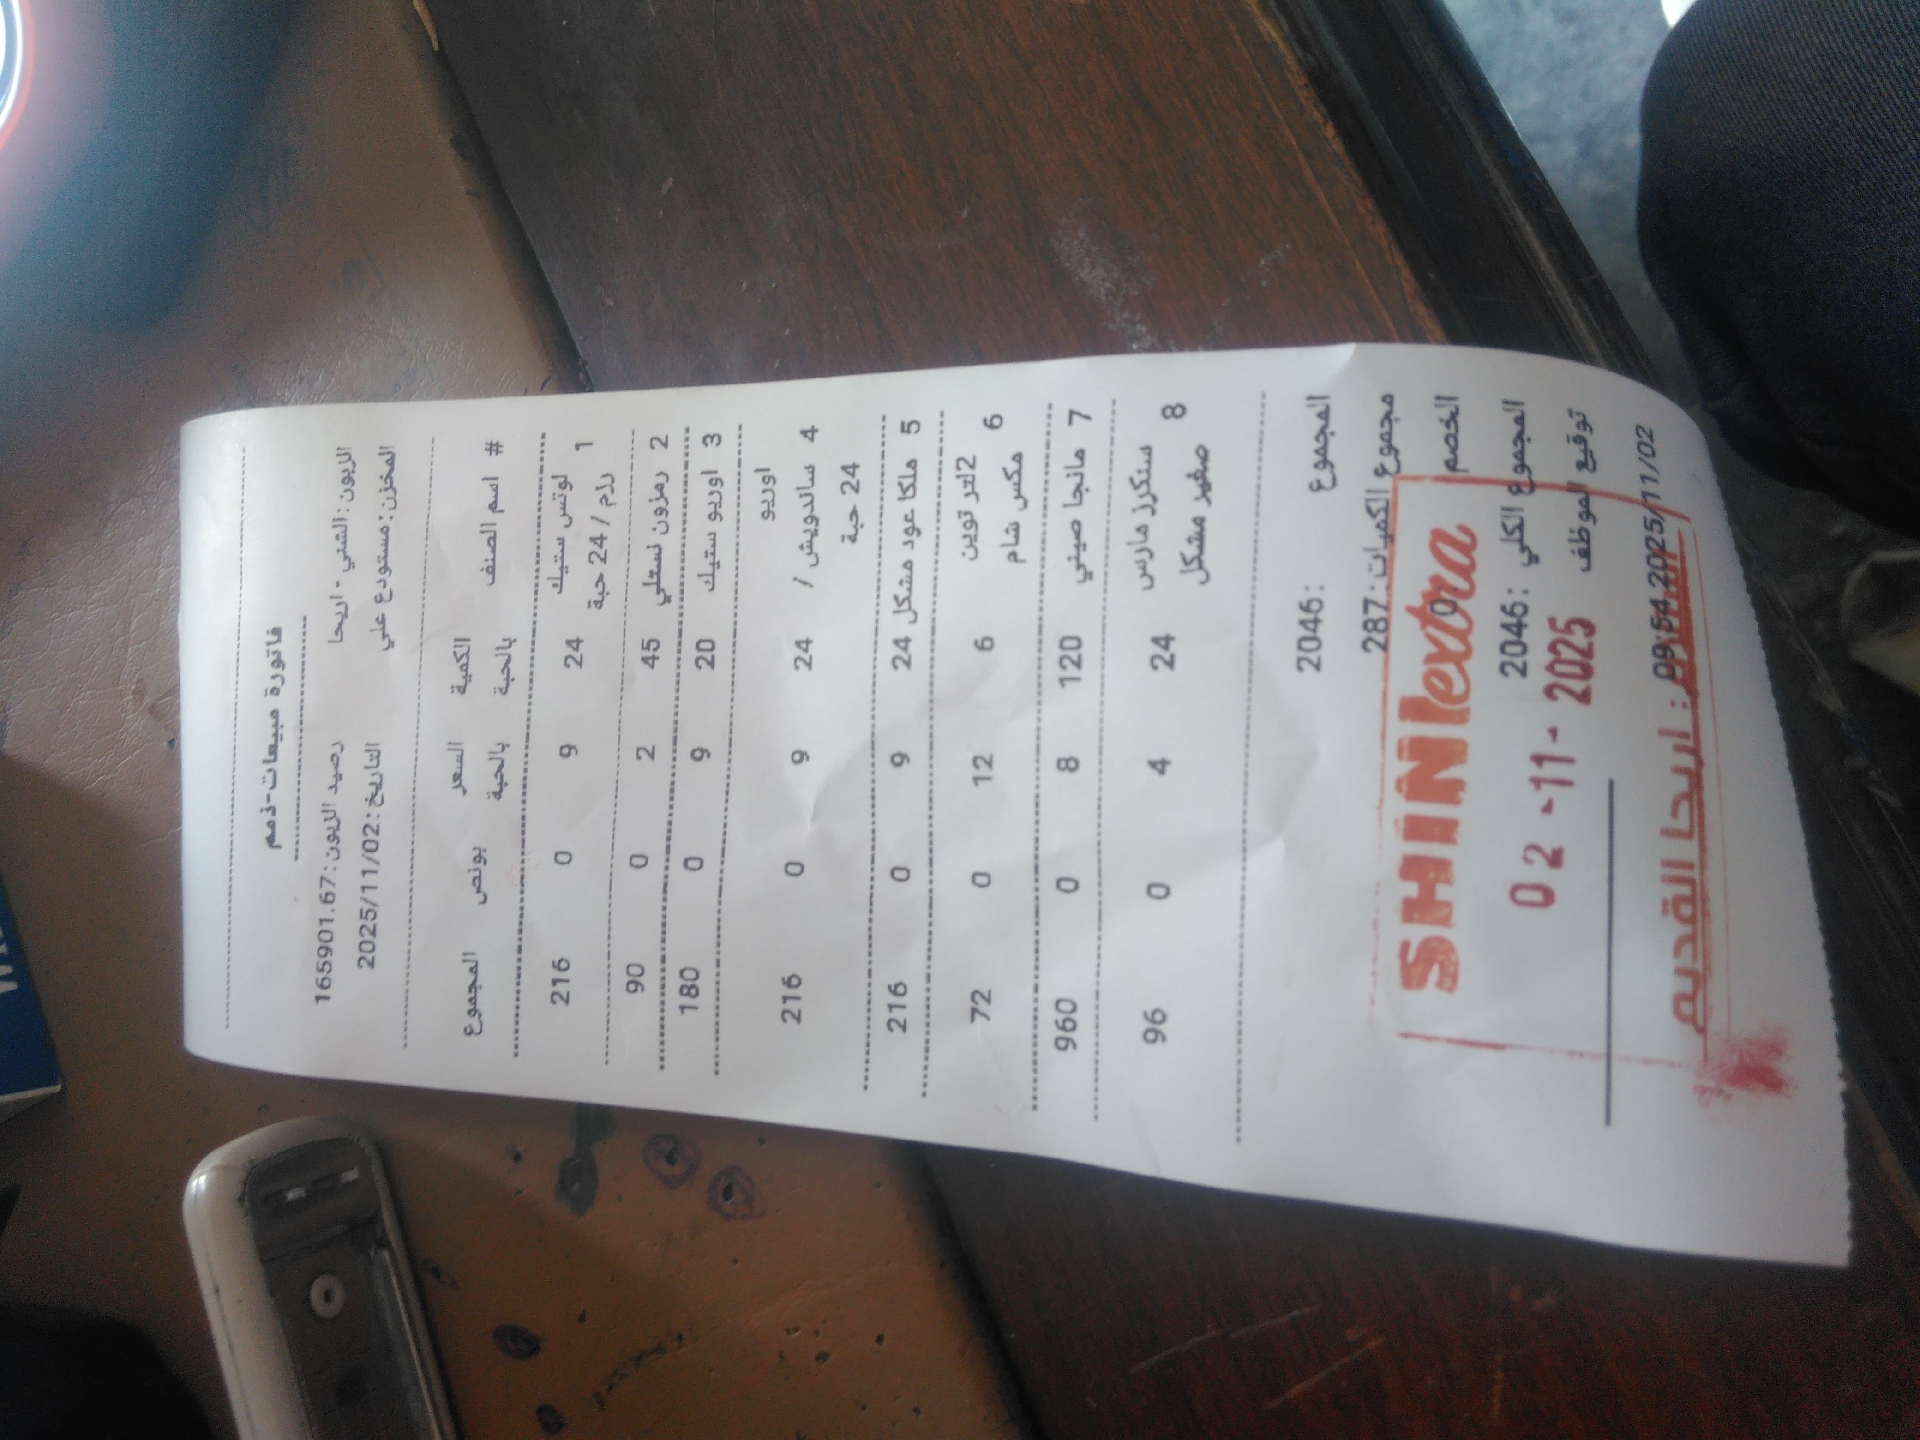 فاتورة مبيعات-ذمم
الزبون: الشني - اريحا رصيد الزبون: 165901.67
المخزن: مستودع علي التاريخ: 2025/11/02
# اسم الصنف الكمية بالحبة السعر بالحبة بونص المجموع
1 لوتس ستيك 24 9 0 216
رزم / 24 حبة
2 رمزون نستلي 45 2 0 90
3 اوريو ستيك 20 9 0 180
اوريو
4 ساندويش / 24 9 0 216
24 حبة
5 ملكا عود مشكل 24 9 0 216
6 2لتر توين 6 12 0 72
مكس شام
7 مانجا صيني 120 8 0 960
8 سنكرز مارس 24 4 0 96
صغير مشكل
المجموع :2046
مجموع الكميات :287
الخصم :0
المجموع الكلي :2046
توقيع الموظف
09:54 2025/11/02
SHINI extra
02 -11- 2025
: اريحا القديم